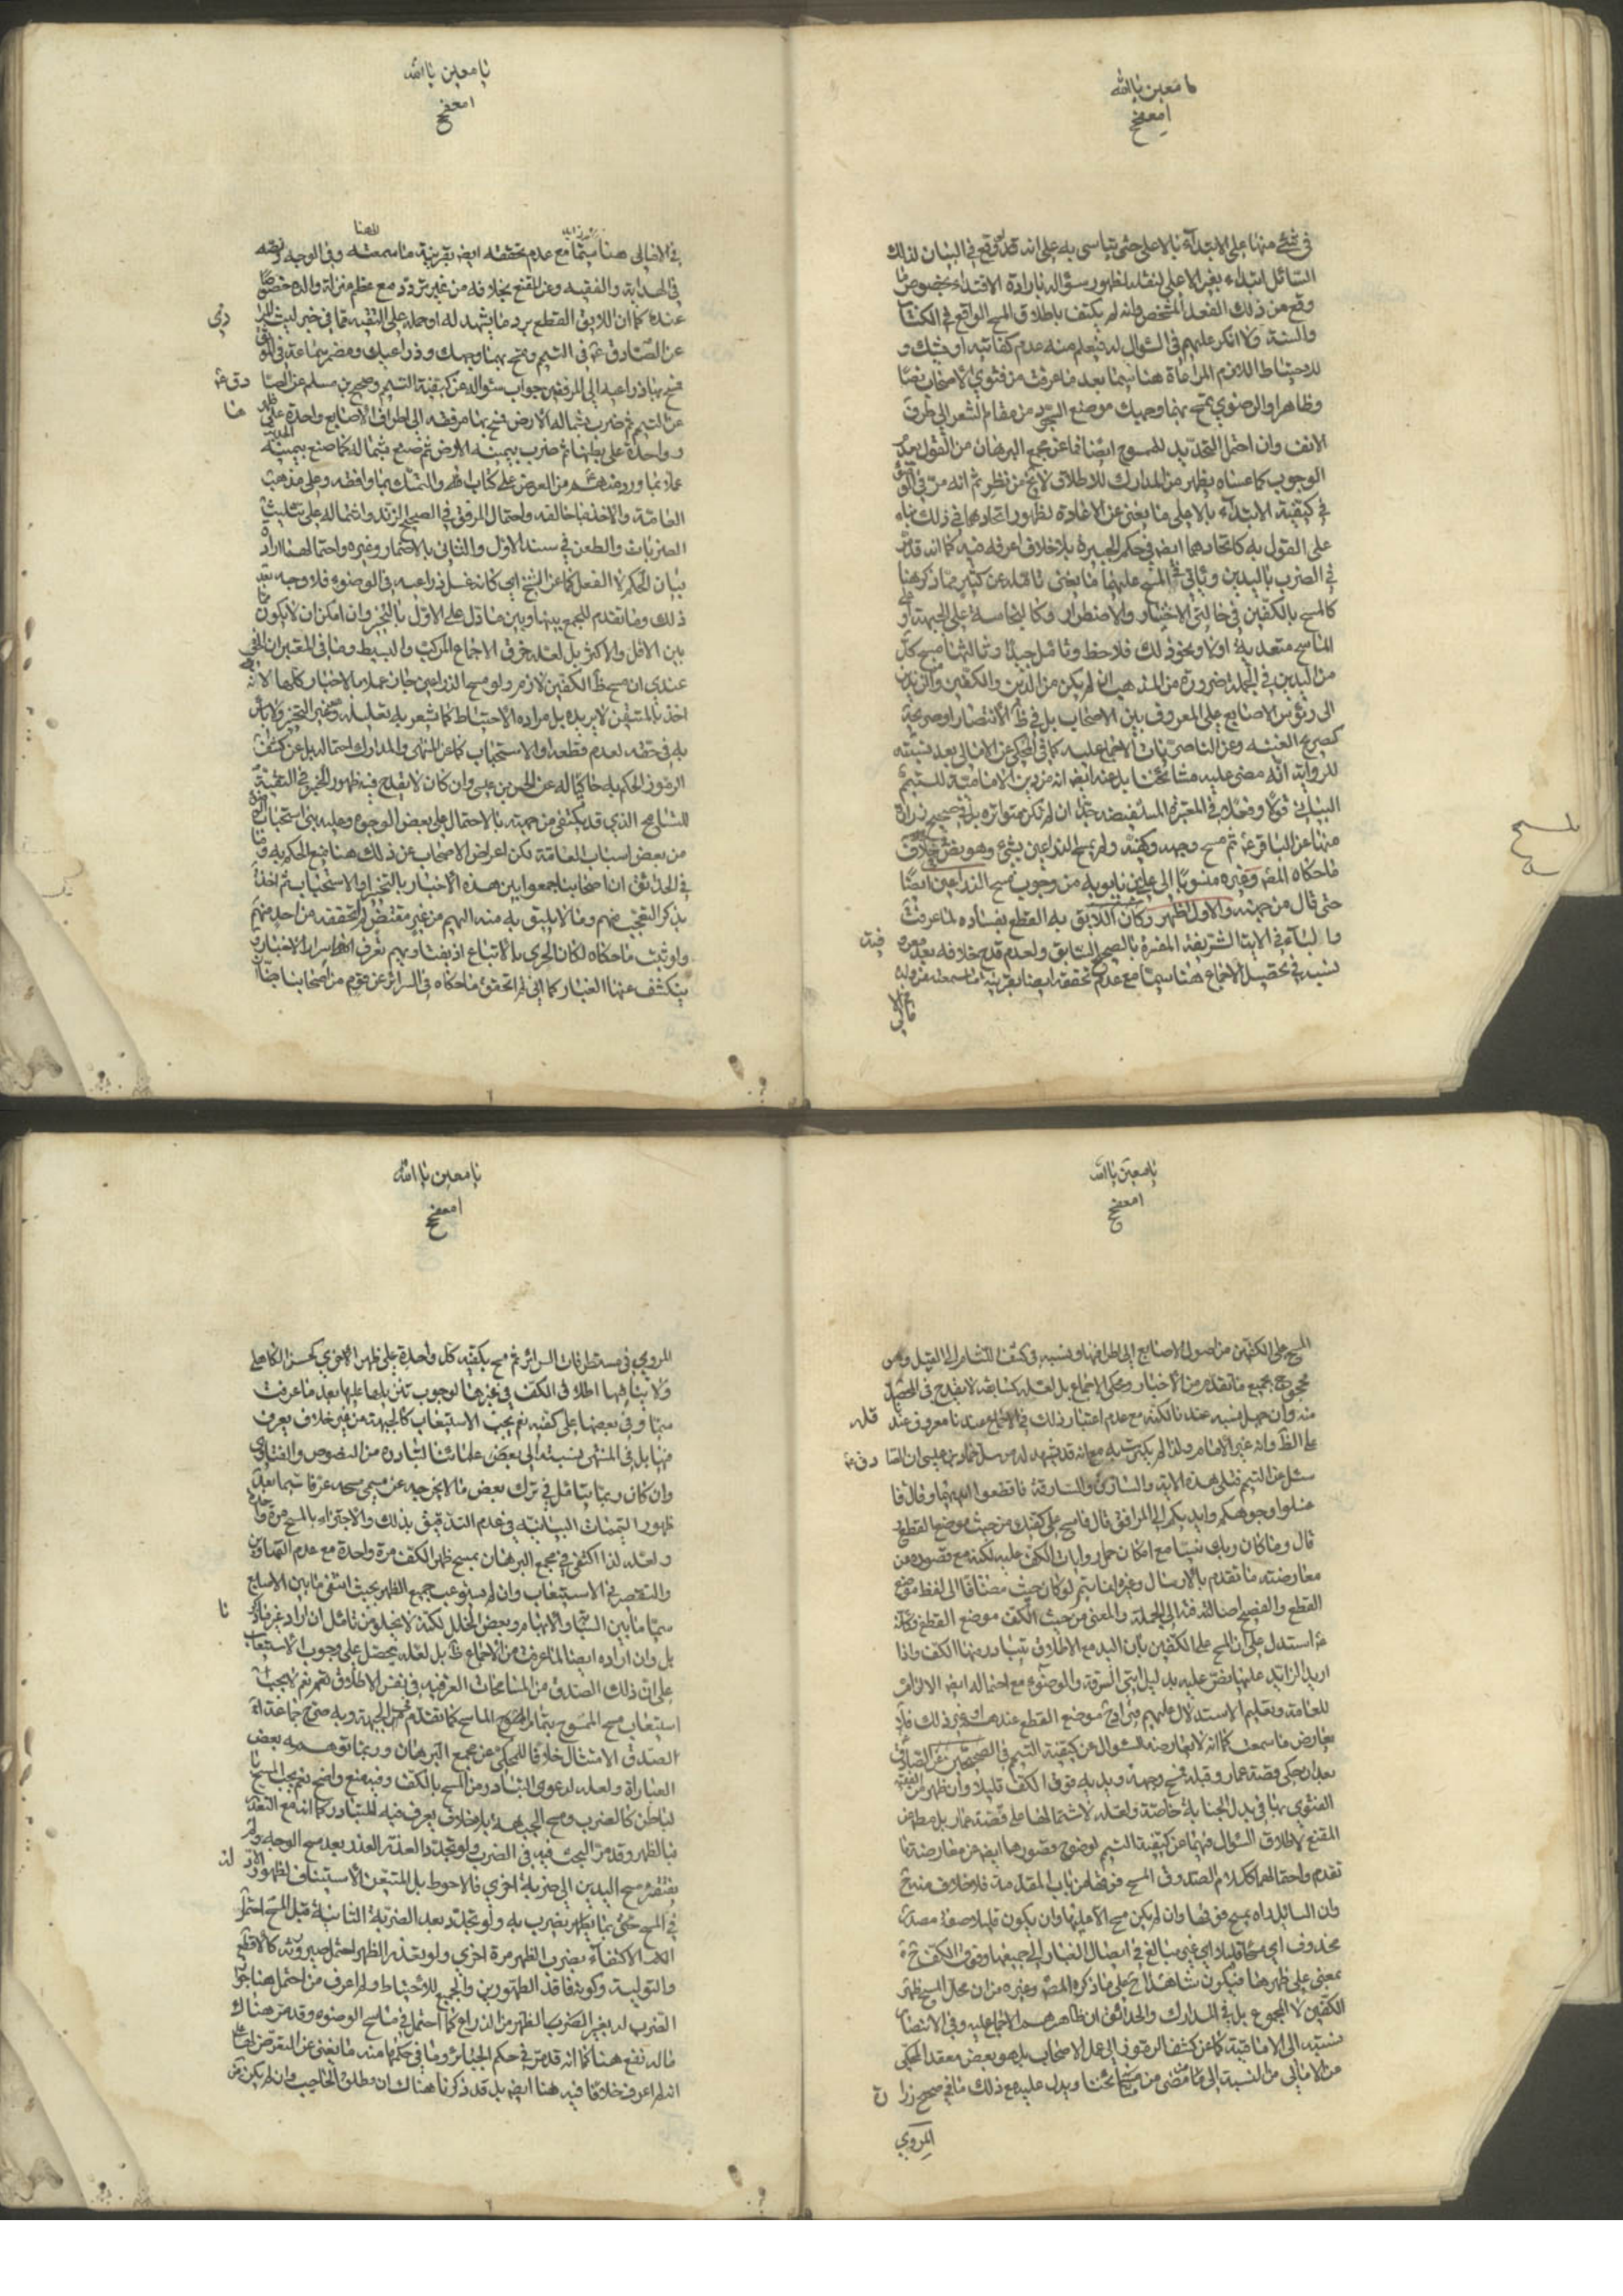 يا معين يا الله
امعفج
في شئ منها على الابتداء بالاعلى حتى يتاسى به على انه قد وقع في البيان لذلك
السائل ابتداء بغير الاعلى لنقل لظهور سؤاله بارادة الاقتداء بخصوص ما
وقع من ذلك الفعل المشخص وانه لم يكتف باطلاق المسح الواقع في الكتاب
والسنة ولا انكر عليهم في السؤال له فيعلم منه عدم كفايته او
للاحتياط اللازم المراعاة هنا سيما بعد ما عرفت من فتوى الاصحاب نصا
وظاهرا والرضوي تمسح بهما وجهك موضع السجود من مقام الشعر الى طرف
الانف وان احتمل التحديد للممسوح ايضا فما عن مجمع البرهان من القول بعدم
الوجوب كما عساه يظهر من المدارك للاطلاق لا يخ عن نظر ثم انه مر في الوضوء
في كيفية الابتداء بالاعلى ما يغنى عن الاعادة لظهور اتحادهما في ذلك بناء
على القول به كاتحادهما ايضا في حكم الجبيرة بلا خلاف اعرفه فيه كما انه قد مر
في الضرب باليدين وياتي في المسح عليهما ما يغنى تامله عن كثير مما ذكر هنا
كالمسح بالكفين في حالتي الاختيار والاضطرار وكالنجاسة على الجبهة او
الماسح متعدية اولا ونحو ذلك فلاحظ وتامل جيدا وثالثها مسح كل
من اليدين في الجملة ضرورة من المذهب ان لم يكن من الدين والكفين والزندين
الى رؤس الاصابع على المعروف بين الاصحاب بل في ظ الانتصار او صريحه
كصريح الغنية وعن الناصريات الاجماع عليه كما في المحكي عن الامالى بعد نسبته
للرواية انه مضى عليه مشائخنا بل عنه ايضا انه من دين الامامية للتيمم
البياني قولا وفعلا في المعتبرة المستفيضة جدا ان لم تكن متواترة بل في صحيح زرارة
منها عن الباقر ع ثم مسح وجهه وكفيه ولم يمسح الذراعين بشئ وهو نص خلاف
ما حكاه المص وغيره منسوبا الى علي بن بابويه من وجوب مسح الذراعين ايضا
حتى قال من جهته والاول اظهر وكان اللائق به القطع بفساده لما عرفت
والباء في الاية الشريفة المفسرة بالصحيح السابق ولعدم قدح خلافه بعد معروفية
نسبه في تحصيل الاجماع هنا سيما مع عدم تحققه ايضا بقرينة ما سمعته عن ولده
في الامالي
المسح
يا معين يا الله
امعفج
في الامالى هنا سيما مع عدم تحققه ايضا بقرينة ما سمعته وفى الوجه ونصه
في الهداية والفقيه وعن المقنع بخلافه من غير تردد مع عظم منزلة والده خصوصا
عنده كما ان اللائق القطع برد ما يشهد له او حمله على التقية مما في خبر ليث المرادي
عن الصادق ع في التيمم وتمسح بهما وجهك وذراعيك ومضمر سماعة في الموثق
فمسح بها ذراعيه الى المرفقين جواب سؤاله عن كيفية التيمم وصحيح بن مسلم عن الصادق ع
عن التيمم ثم ضرب بشماله الارض فمسح بها مرفقه الى اطراف الاصابع واحدة على ظهرها
وواحدة على بطنها ثم ضرب بيمينه الارض ثم صنع بشماله كما صنع بيمينه
عملا بما ورد منهم من العرض على كتاب الله والتمسك بما وافقه وعلى مذهب
العامة والاخذ بما خالفه واحتمال المرفق في الصحيح الزند واشتماله على تثليث
الضربات والطعن في سند الاول والثاني بالاضمار وغيره واحتمالهما ارادة
بيان الحكم لا الفعل كما عن الشيخ اي كانه غسل ذراعيه في الوضوء فلا وجه بعد
ذلك وما تقدم للجمع بينها وبين ما دل على الاول بالتخيير وان امكن ان لا يكون مما
بين الاقل والاكثر بل لعله خرق الاجماع المركب والبسيط وما في المعتبر ان الحق
عندي ان مسح ظ الكفين لازم ولو مسح الذراعين جاز عملا بالاخبار كلها لانه
اخذ بالمتيقن لا يريده بل مراده الاحتياط كما شعر به تعليله وغير التخيير ولا باس
به في حقه لعدم قطعه او الاستحباب كما عن المنتهى والمدارك احتماله بل عن كشف
الرموز الحكم به حاكيا له عن الحسن بن عيسى وان كان لا يقدح فيه ظهور الخبر في التقية
للتسامح الذي قد يكتفى من جهته بالاحتمال على بعض الوجوه وعليه بنى استحباب
من بعض اسباب العامة لكن اعراض الاصحاب عن ذلك هنا يمنع الحكم به وما
في الحدائق ان اصحابنا جمعوا بين هذه الاخبار بالتخيير او الاستحباب ثم اخذ
يذكر التعجب منهم وما لا يليق به منه اليهم من غير مقتض لم نتحققه من احد منهم
ولو ثبت ما حكاه لكان الحري به الاتباع اذ بفتاويهم تعرف اسرار الاخبار و
ينكشف عنها الغبار كما اني لم اتحقق ما حكاه في السرائر عن قوم من اصحابنا ايضا
يا معين يا الله
امعفج
المسح على الكفين من اصول الاصابع الى اطرافها ونسبه في كشف اللثام الى القيل وهو
محجوج بجميع ما تقدم من الاخبار ومحكي الاجماع بل لعله كسابقه لا يقدح في المحصل
منه وان جهل نسبه عندنا لكنه مع عدم اعتبار ذلك في الاجماع عندنا معروف عند قائله
على الظ وانه غير الامام ولذا لم يكترث به مع انه قد يشهد له مرسل حماد بن عيسى ان الصادق ع
سئل عن التيمم فتلى هذه الاية والسارق والسارقة فاقطعوا ايديهما وقال فا
غسلوا وجوهكم وايديكم الى المرافق قال فامسح على كفيك من حيث موضع القطع
قال وما كان ربك نسيا مع امكان حمل روايات الكف عليه لكنه مع قصوره عن
معارضة ما تقدم بالارسال وغيره انما يتم لو كان حيث مضافا الى لفظ موضع
القطع والفصيح اضافته الى الجملة والمعنى من حيث الكف موضع القطع وكانه
ع استدل على ان المسح على الكفين بان اليد مع الاطلاق يتبادر منها الكف واذا
اريد الزائد عليها نص عليه بدليل ايتي السرقة والوضوء مع احتماله ايضا الالزام
للعامة وتعليما للاستدلال عليهم موضع القطع عندهم او غير ذلك فلا
يعارض ما سمعت كما انه لا يعارضه السؤال عن كيفية التيمم في الصحيحين عن الصادق ع
بعد ان حكى قصة عمار وقبله فمسح وجهه ويديه فوق الكف قليلا وان ظهر من الفقيه
الفتوى بها في بدل الجنابة خاصة ولعله لاشتمالهما على قصة عمار بل مطلقا عن
المقنع لاطلاق السؤال فيهما عن كيفية التيمم لوضوح قصورهما ايضا عن معارضة ما
تقدم واحتمالهما ككلام الصدوق المسح فوقها من باب المقدمة فلا خلاف منه ح
وان السائل راه يمسح فوقها وان لم يكن مسح الا عليها وان يكون قليلا صفة مصدر
محذوف اي مسحا قليلا اي غير مبالغ في ايصال الغبار الى جميعها وفوق الكف ح
بمعنى على ظهرها فيكون شاهدا ح على ما ذكره المص وغيره من ان محل المسح ظهر
الكفين لا المجموع بل في المدارك والحدائق ان ظاهرهم الاجماع عليه وفي الانتصار
نسبته الى الامامية كما عن كشف الرموز الى عمل الاصحاب بل هو بعض معقد المحكى
عن الامالى من النسبة الى ما مضى من مشائخنا ويدل عليه مع ذلك ما في صحيح زرارة
المروي
يا معين يا الله
امعفج
المروي في مستطرفات السرائر ثم مسح بكفيه كل واحدة على ظهر الاخرى كحسن الكاهلي
ولا ينافيها اطلاق الكف في غيرها لوجوب تنزيلها عليها بعد ما عرفت
منها وفي بعضها على كفيه نعم يجب الاستيعاب كالجبهة من غير خلاف يعرف
فيها بل في المنتهى نسبته الى بعض علمائنا لتبادره من النصوص والفتاوي
وان كان ربما يتامل في ترك بعض ما لا يخرجه عن مسمى مسحه عرفا سيما بعد
ظهور التيممات البيانية في عدم التدقيق بذلك والاجتزاء بالمسح مرة واحدة
ولعله لذا اكتفى في مجمع البرهان بمسح ظهر الكف مرة واحدة مع عدم التهاون
والتقصير في الاستيعاب وان لم يستوعب جميع الظهر بحيث انتفى ما بين الاصابع
سيما ما بين السبابة والابهام وبعض الخلل لكنه لا يخلو من تامل ان اراد غير ما ذكرنا
بل وان اراده ايضا لما عرفت من الاجماع ظ بل لعله محصل على وجوب الاستيعاب
على ان ذلك الصدق من المسامحات العرفية في نفس الاطلاق نعم لا يجب
استيعاب مسح الممسوح بتمام الماسح كما تقدم في الجبهة وبه صرح جماعة
لصدق الامتثال خلافا للمحكي عن مجمع البرهان وربما توهمه بعض
العبارات ولعله لدعوى التبادر من المسح بالكف وفيه منع واضح نعم يجب المسح
لباطن كالضرب ومسح الجبهة بلا خلاف يعرف فيه للتبادر كما انه مع التعذر
فبالظهر وقد مر البحث فيه في الضرب ولو تجدد العذر بعد مسح الوجه ولم
يفتقر مسح اليدين الى ضربة اخرى فالاحوط بل المتيقن الاستيناف لظهور الادلة
في المسح حتى بما يضرب به ولو تجدد بعد الضربة الثانية قبل المسح احتمل
الاكتفاء بضرب الظهر مرة اخرى ولو تعذر الظهر احتمل صيرورته كالاقطع
والتولية وكونه فاقد الطهورين والجمع للاحتياط ولم اعرف من احتمل هنا جواز
الضرب له بغير المضروب الظهر من الذراع كما احتمل في ماسح الوضوء وقد مر هناك
ما له نفع هنا كما انه قد مر في حكم الجبائر وما في حكمها منه ما يغنى عن التعرض لها
اذ لم اعرف خلافا فيه هنا ايضا بل قد ذكرنا هناك ان مطلق الحاجب وان لم يكن عن